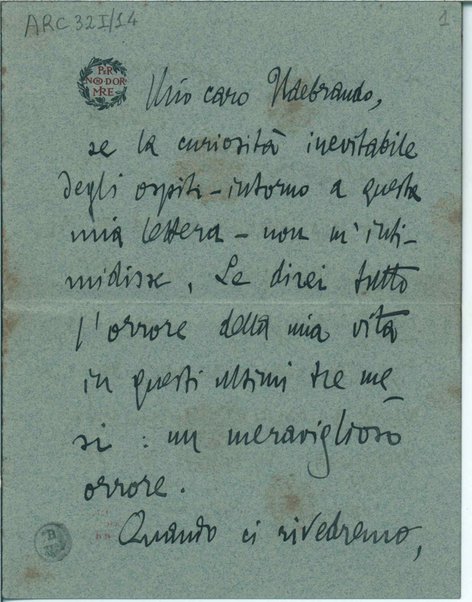 ARC 32 I/14
1
PER
NON DOR
MIRE
Mio caro Ildebrando,
se la curiosità inevitabile
degli ospiti – intorno a questa
mia lettera – non m'inti-
midisse, Le direi tutto
l'orrore della mia vita
in questi ultimi tre me
si : un meraviglioso
orrore.
Quando ci rivedremo,